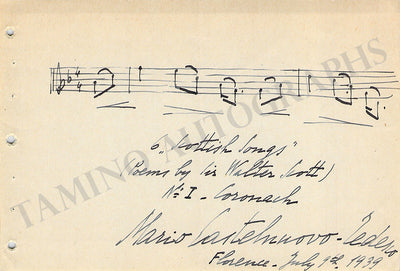 "Scottish Songs"
(Poems by Sir Walter Scott)
No. I - Coronach
Mario Castelnuovo-Tedesco
Florence - July 1st, 1939
TAMINO AUTOGRAPHS